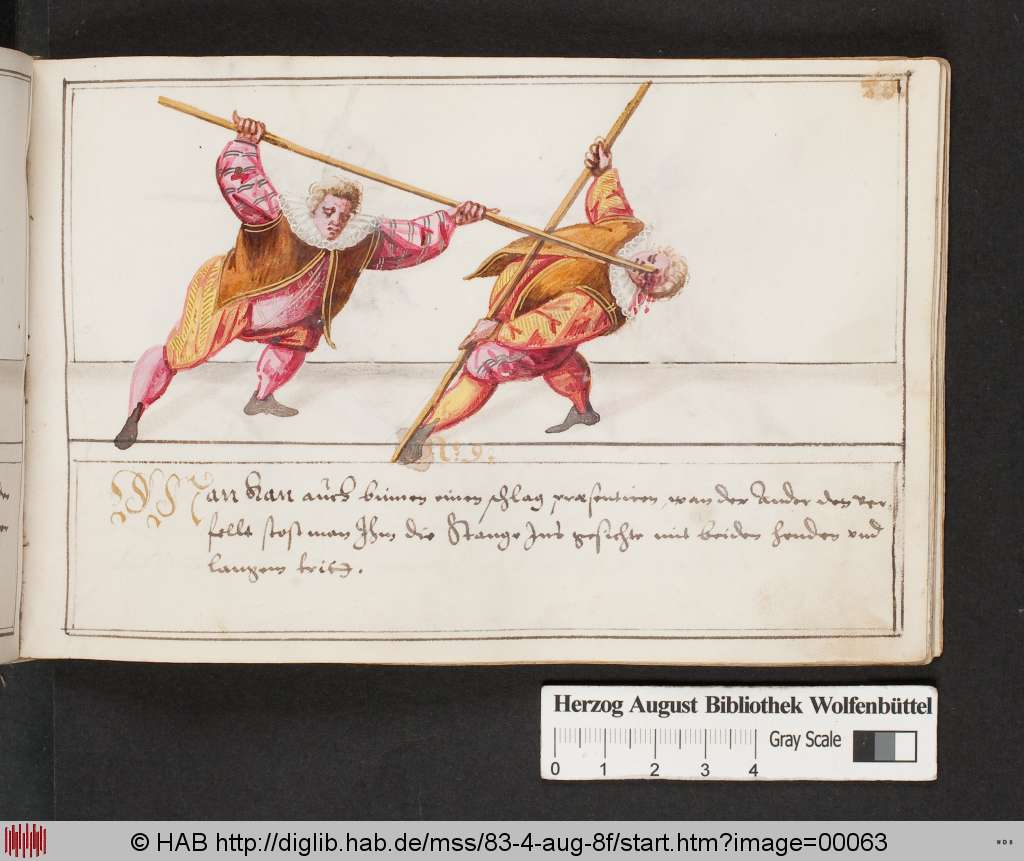 Nr. 9.
Man kan auch binnen einen schlag præsentiren, wan der Ander den ver
fellt stost man Ihm die Stange Ins gesichte mit beiden henden vnd
langem tritt.
Herzog August Bibliothek Wolfenbüttel
Gray Scale
0 1 2 3 4
© HAB http://diglib.hab.de/mss/83-4-aug-8f/start.htm?image=00063